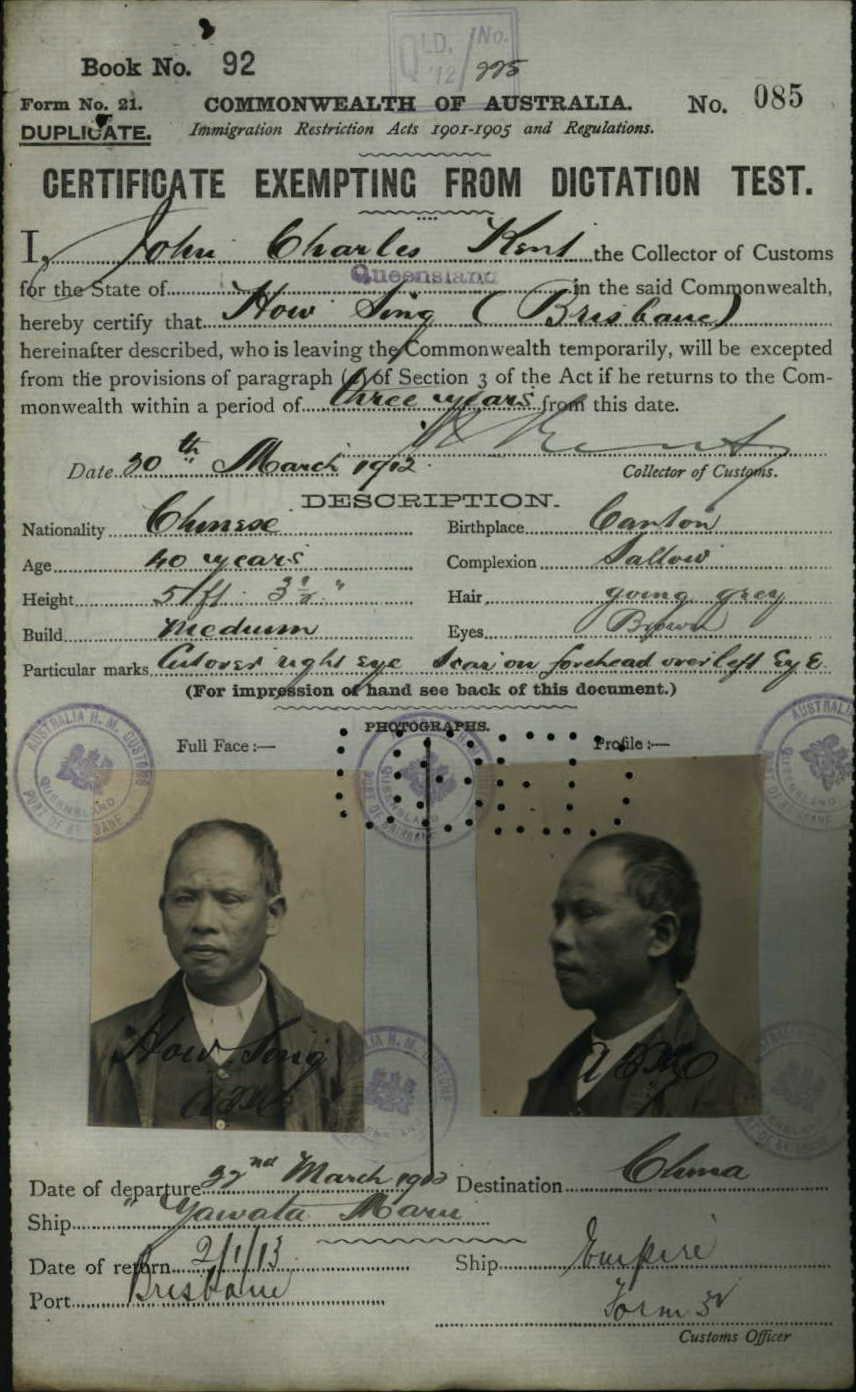 Book No. 92
QLD. No.
'12 / 995
Form No. 21.
COMMONWEALTH OF AUSTRALIA.
No. 085
DUPLICATE.
Immigration Restriction Acts 1901-1905 and Regulations.
CERTIFICATE EXEMPTING FROM DICTATION TEST.
I, John Charles Kent the Collector of Customs
for the State of Queensland in the said Commonwealth,
hereby certify that How Sing (Brisbane)
hereinafter described, who is leaving the Commonwealth temporarily, will be excepted
from the provisions of paragraph (a) of Section 3 of the Act if he returns to the Com-
monwealth within a period of three years from this date.
Date 20th March 1912
Collector of Customs.
DESCRIPTION.
Nationality Chinese
Birthplace Canton
Age 40 years
Complexion Sallow
Height 5 ft 3½"
Hair going grey
Build Medium
Eyes Brown
Particular marks Cut over right eye Scar on forehead over left Eye
(For impression of hand see back of this document.)
PHOTOGRAPHS.
Full Face :—
Profile :—
AUSTRALIA H. M. CUSTOMS
QUEENSLAND
PORT OF BRISBANE
How Sing
Date of departure 22nd March 1912
Destination China
Ship Yawata Maru
Date of return 2/1/13
Ship Empire
Port Brisbane
Form 32
Customs Officer